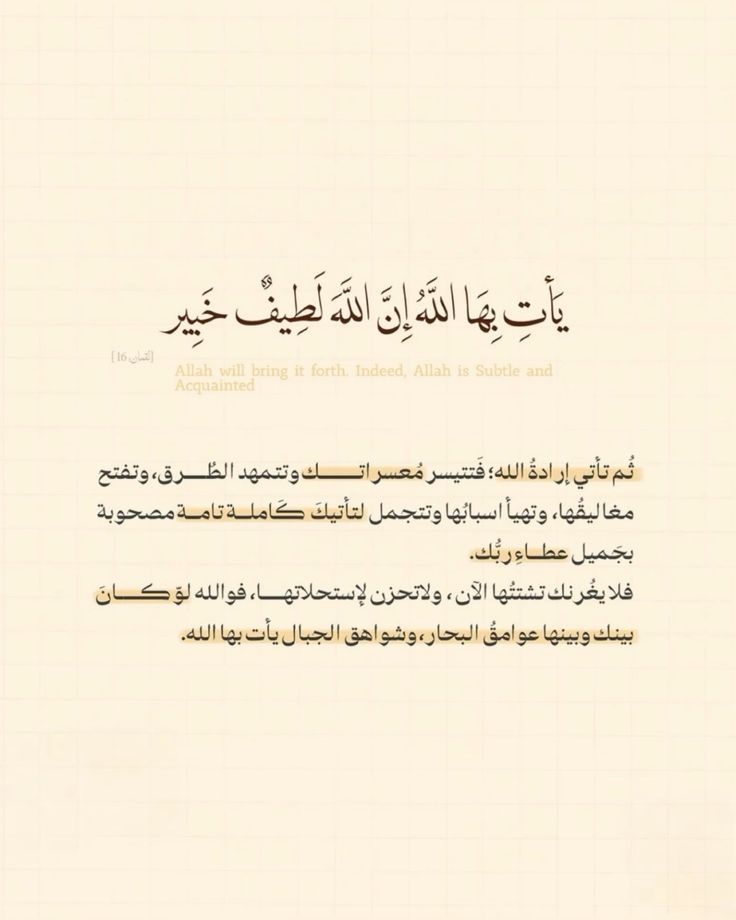 يَأتِ بِهَا اللَّهُ إِنَّ اللَّهَ لَطِيفٌ خَبِير
[لقمان، 16]
Allah will bring it forth. Indeed, Allah is Subtle and
Acquainted
ثُم تأتي إرادةُ الله؛ فَتتيسر مُعسراتـــك وتتمهد الطُــرق، وتفتح
مغاليقُها، وتهيأ اسبابُها وتتجمل لتأتيكَ كَاملــة تامــة مصحوبة
بجَميل عطــاءِ ربُّك.
فلا يغُرنك تشتتُها الآن ، ولاتحزن لإستحلاتهــا، فوالله لوّ كــانَ
بينك وبينها عوامقُ البحار، وشواهق الجبال يأت بها الله.